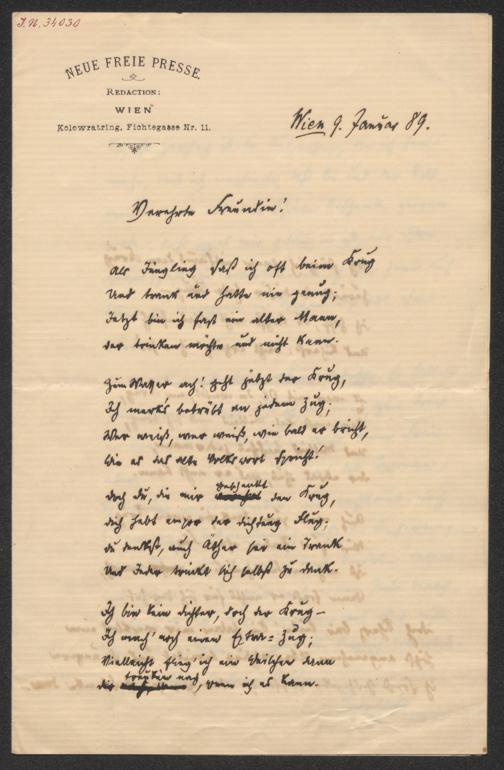 J.N. 34030
NEUE FREIE PRESSE.
REDACTION:
WIEN
Kolowratring, Fichtegasse Nr. 11.
Wien 9. Januar 89.
Verehrte Freundin!
Als Jüngling saß ich oft beim Krug
Und trank und hatte nie genug;
Jetzt bin ich fast ein alter Mann,
der trinken möchte und nicht kann.
Zum Wasser ach! geht jetzt der Krug,
Ich merk's betrübt an jedem Zug;
Wer weiß, wer weiß, wie bald er bricht,
Wie es das alte Volkswort spricht!
Doch du, die mir geschenkt den Krug,
dich hebt empor der Dichtung Flug;
du denkst, auch Äther sei ein Trank
Und Jeder trinkt sich selbst zu dank.
Ich bin kein Dichter, doch der Krug –
Ich mach' noch einen Extra-Zug;
Vielleicht fing ich ein Weilchen dann
dir nach, wenn ich es kann.